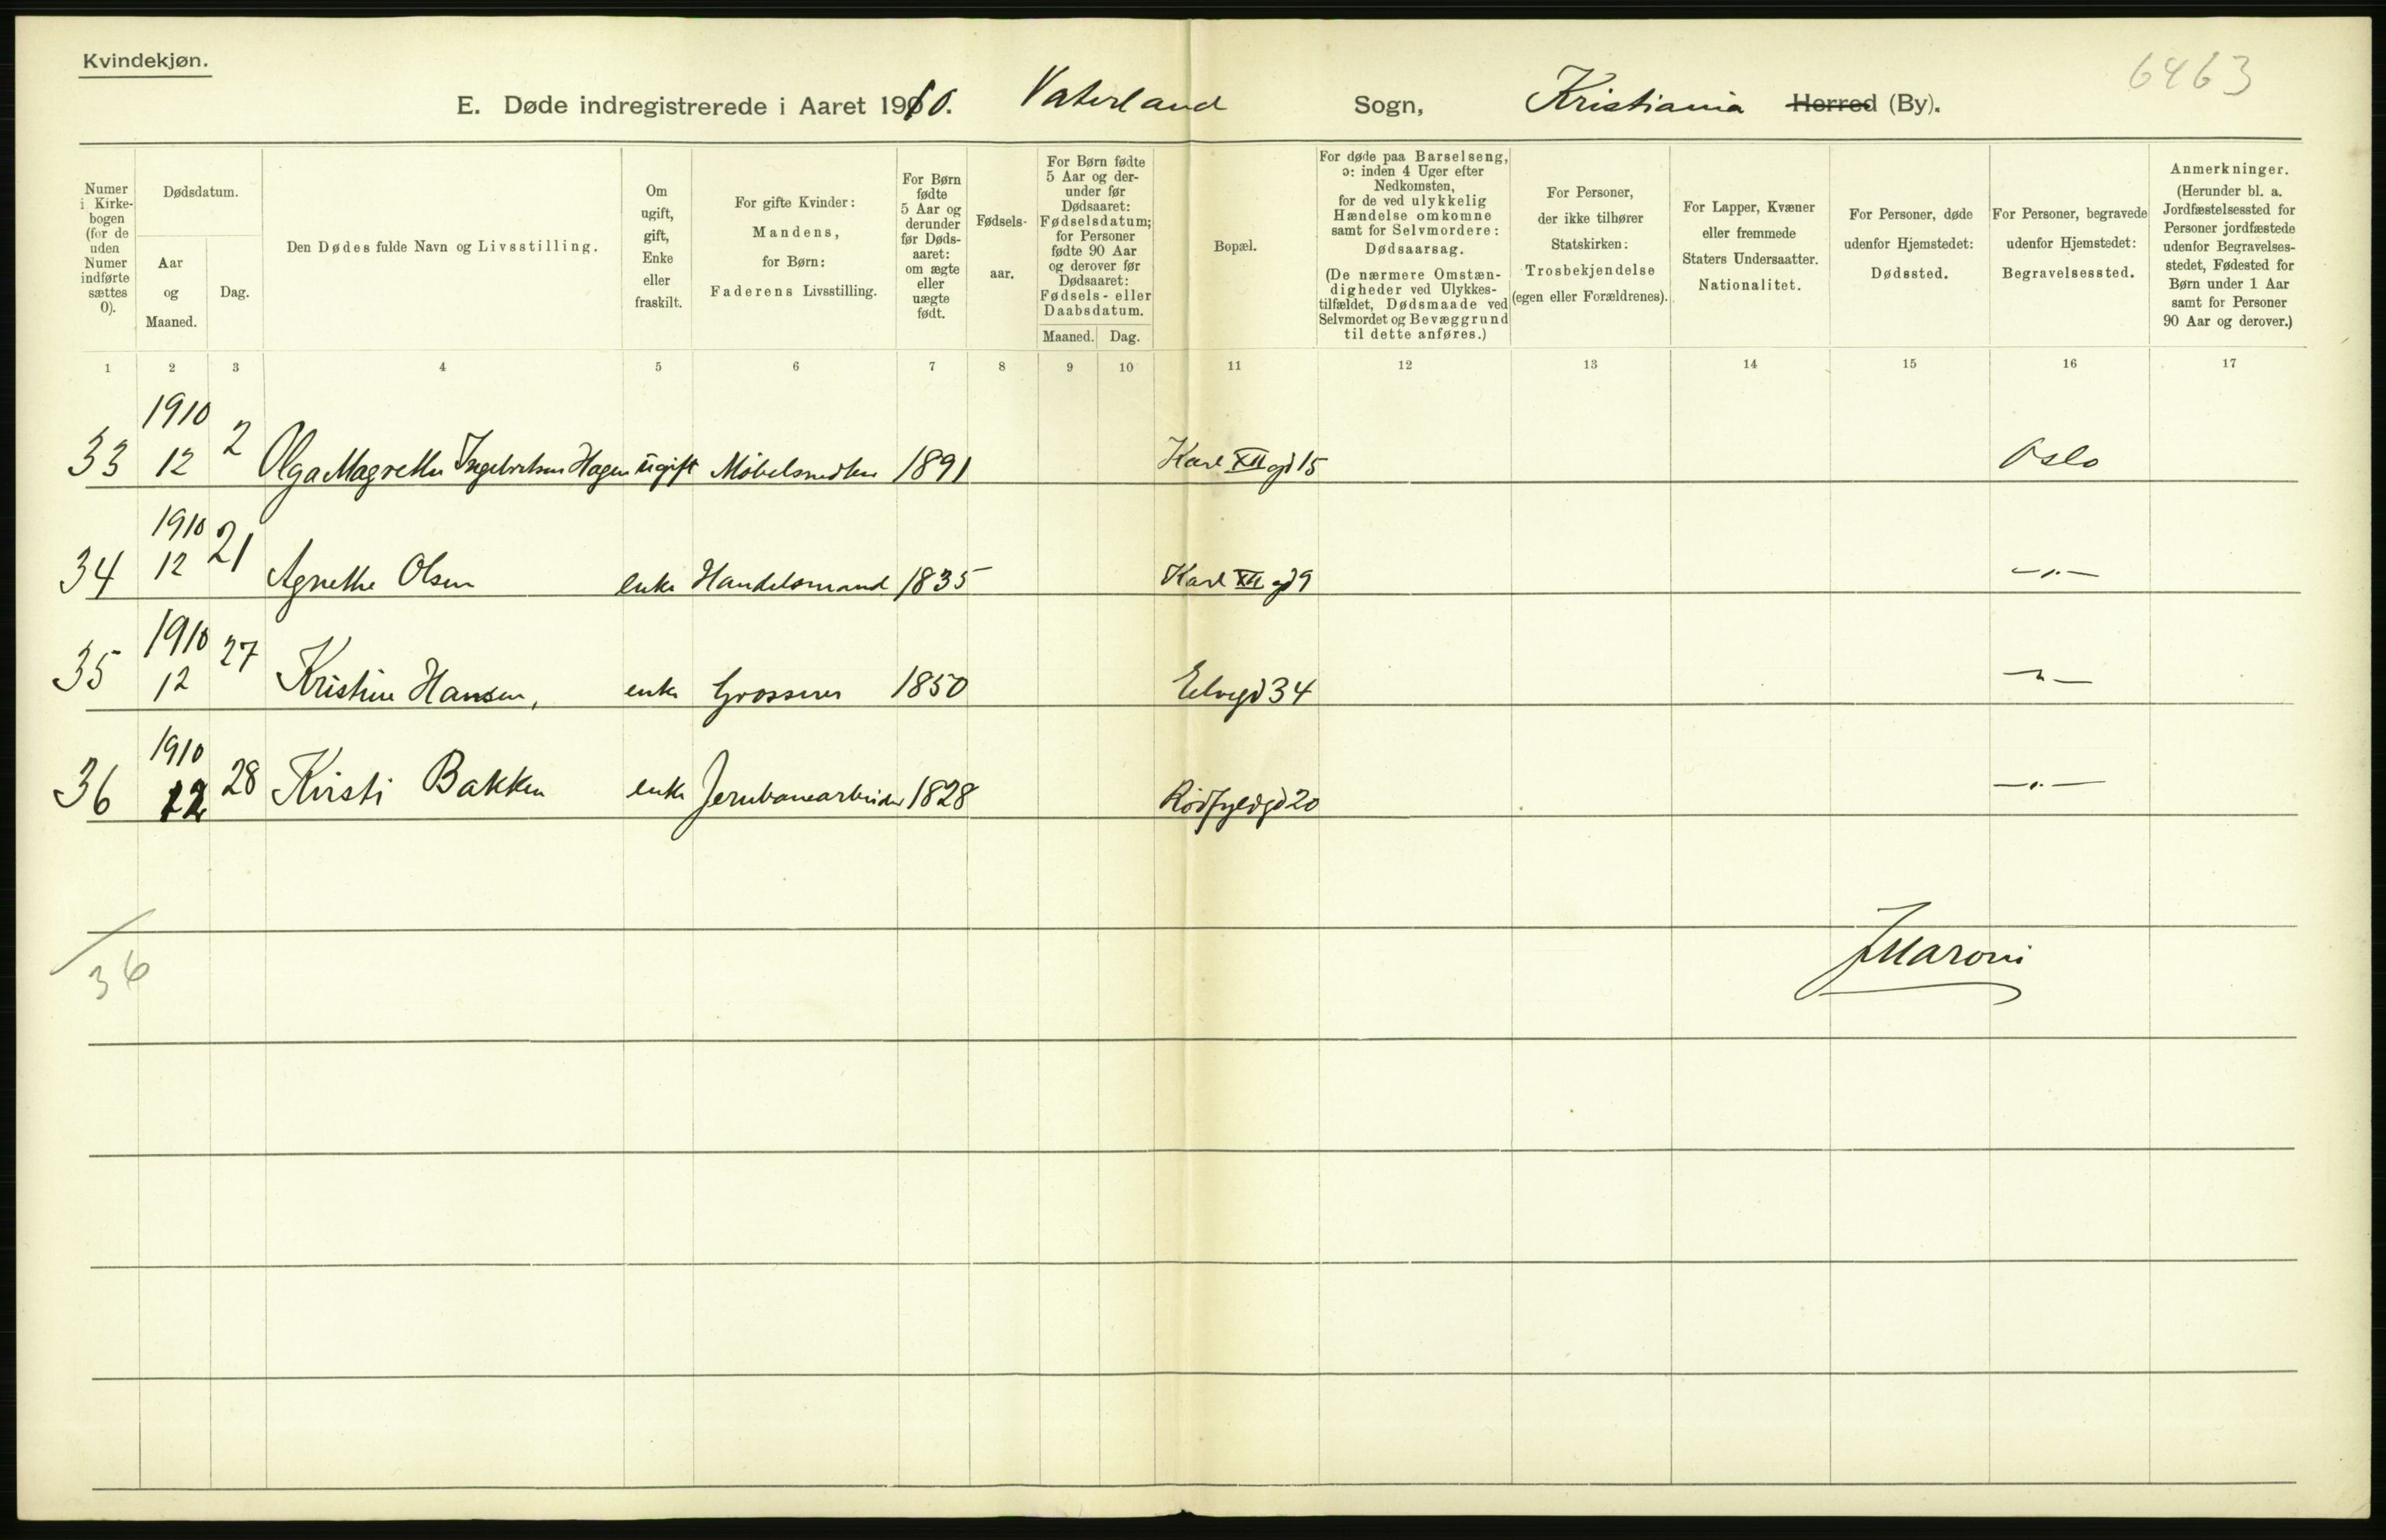 Kvindekjøn.
6463
E. Døde indregistrerede i Aaret 1910. Vaterland Sogn, Kristiania Herred (By).
Numer i Kirkebogen (for de uden Numer indførte sættes 0).
Dødsdatum.
Aar og Maaned.
Dag.
Den Dødes fulde Navn og Livsstilling.
Om ugift, gift, Enke eller fraskilt.
For gifte Kvinder: Mandens, for Børn: Faderens Livsstilling.
For Børn fødte 5 Aar og derunder før Dødsaaret: om ægte eller uægte født.
Fødselsaar.
For Børn fødte 5 Aar og derunder før Dødsaaret: Fødselsdatum; for Personer fødte 90 Aar og derover før Dødsaaret: Fødsels- eller Daabsdatum.
Maaned. Dag.
Bopæl.
For døde paa Barselseng, ɔ: inden 4 Uger efter Nedkomsten, for de ved ulykkelig Hændelse omkomne samt for Selvmordere: Dødsaarsag. (De nærmere Omstændigheder ved Ulykkestilfældet, Dødsmaade ved Selvmordet og Bevæggrund til dette anføres.)
For Personer, der ikke tilhører Statskirken: Trosbekjendelse (egen eller Forældrenes).
For Lapper, Kvæner eller fremmede Staters Undersaatter. Nationalitet.
For Personer, døde udenfor Hjemstedet: Dødssted.
For Personer, begravede udenfor Hjemstedet: Begravelsessted.
Anmerkninger. (Herunder bl. a. Jordfæstelsessted for Personer jordfæstede udenfor Begravelsesstedet, Fødested for Børn under 1 Aar samt for Personer 90 Aar og derover.)
1 2 3 4 5 6 7 8 9 10 11 12 13 14 15 16 17
33 1910 12 2 Olga Magrethe Ingebretsen Hagen ugift Møbelsnedker 1891 Karl XII gd 15 Oslo
34 1910 12 21 Agnethe Olsen enke Handelsmand 1835 Karl XII gd 9 —"—
35 1910 12 27 Kristine Hansen, enke Grosserer 1850 Elvegd 34 —"—
36 1910 12 28 Kirsti Bakken enke Jernbanearbeider 1828 Rødfyldgd 20 —"—
36
J Maroni